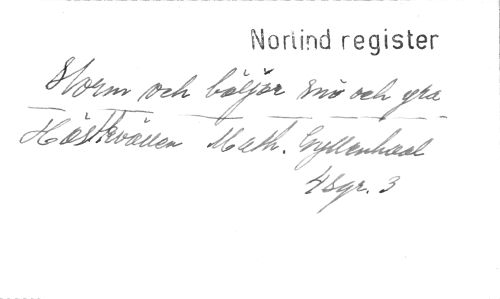 Norlind register
Storm och böljor snö och yra
Höstkvällen Math. Gyllenhaal
4 sgr. 3